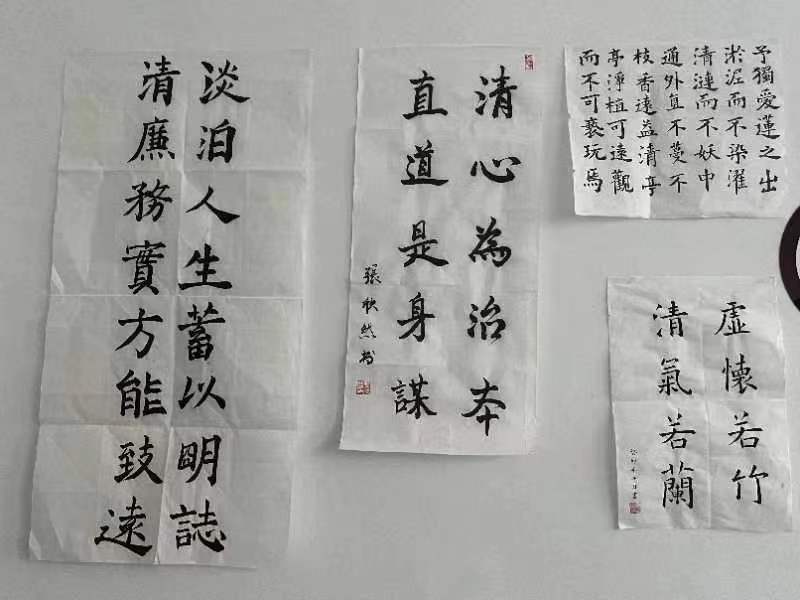 淡泊人生蓄以明誌
清廉務實方能致遠
清心為治本
直道是身謀
張秋然书
予獨愛蓮之出
淤泥而不染濯
清漣而不妖中
通外直不蔓不
枝香遠益清亭
亭淨植可遠觀
而不可褻玩焉
虛懷若竹
清氣若蘭